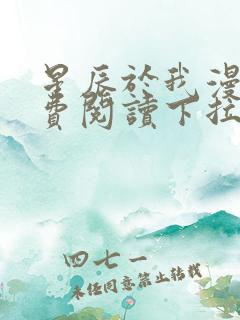 星辰於我漫
費閱讀下拉
四七一
未经同意禁止转载